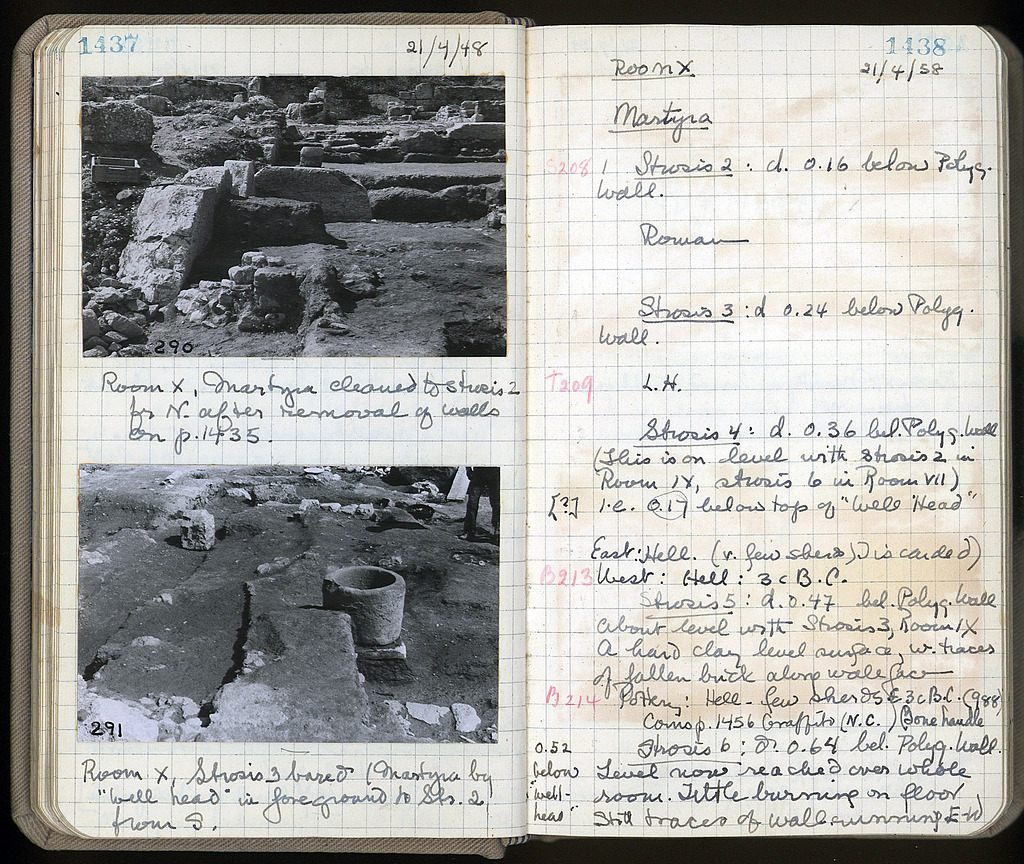 1437
21/4/48
290
Room X, Martyra cleaned to strosis 2
fr N. after removal of walls
on p. 1435.
291
Room X, Strosis 3 bared (Martyra by
"well head" in foreground to Str. 2)
from S.
1438
Room X
21/4/58
Martyra
S208 1 Strosis 2 : d. 0.16 below Polyg.
wall.
Roman
Strosis 3 : d 0.24 below Polyg.
Wall.
T209 L.H.
Strosis 4 : d. 0.36 bel. Polyg. Wall
(This is on level with strosis 2 in
Room IX, strosis 6 in Room VII)
[?] i.e. 0.17 below top of "Well Head"
East: Hell. (v. few sherds) Discarded)
B213 West: Hell: 3 c B.C.
Strosis 5 : d. 0.47 bel. Polyg. Wall
about level with Strosis 3, Room IX
A hard clay level surface, w. traces
of fallen brick along wall face
B214 Pottery: Hell - few sherds E 3 c B.C. (988)
Coins p. 1456 Graffito (N.C.) Bone handle
Strosis 6 : d. 0.64 bel. Polyg. Wall.
Level now reached over whole
room. Little burning on floor
Still traces of wall running E-W
0.52
below
"well-
head"